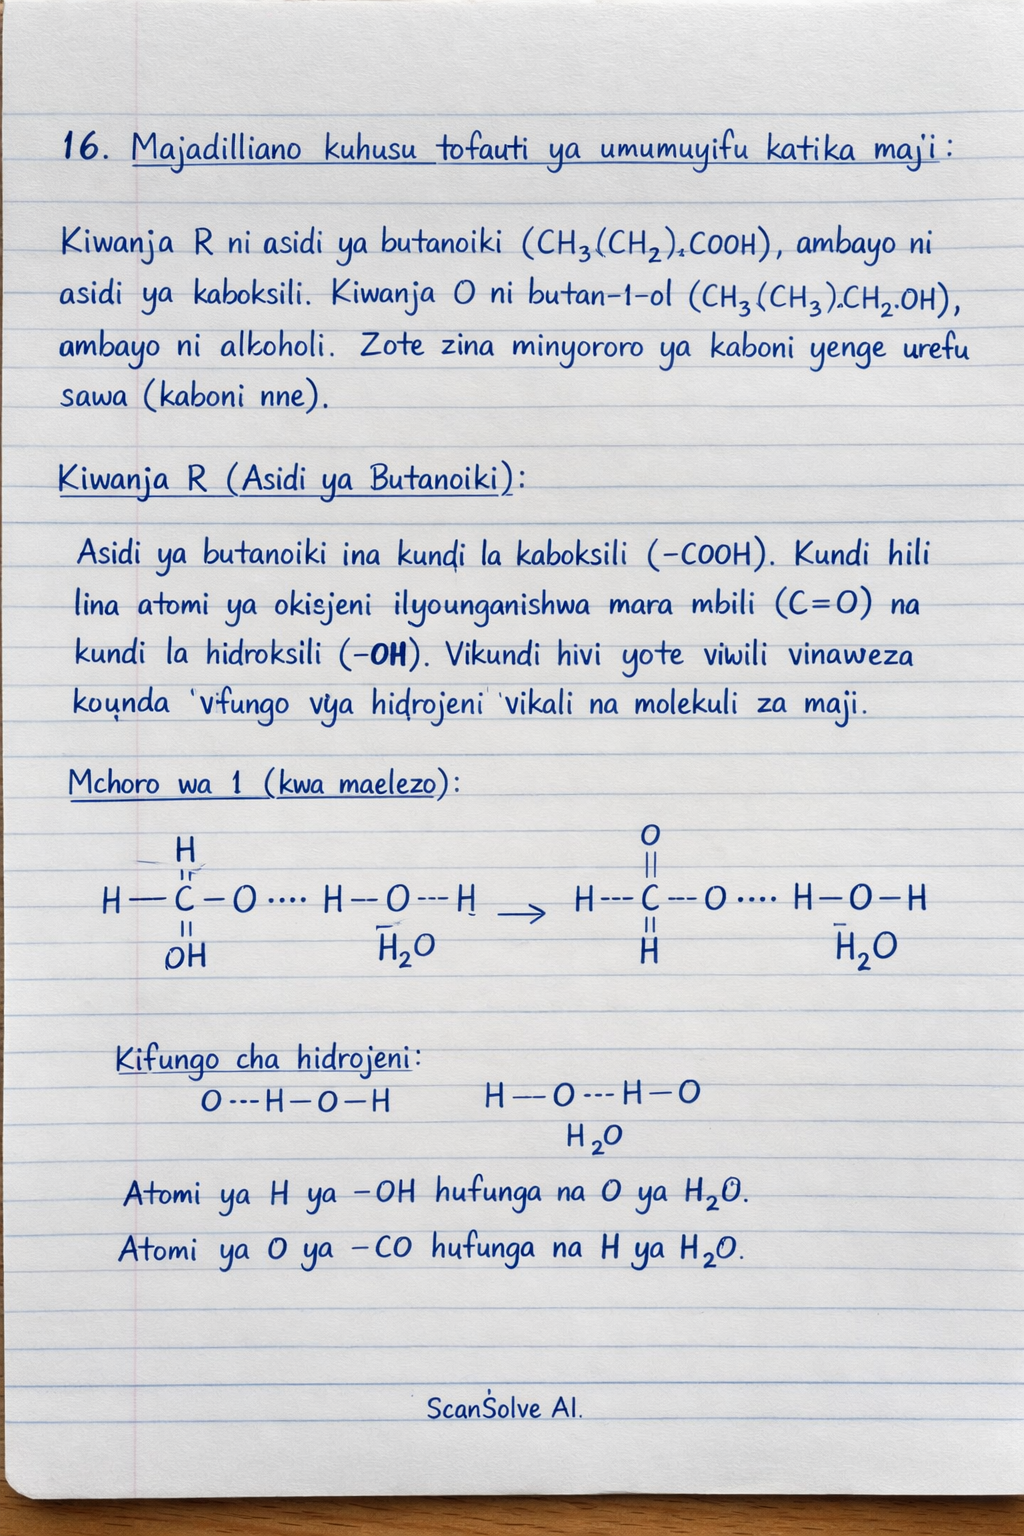 16. Majadilliano kuhusu tofauti ya umumuyifu katika maji:
Kiwanja R ni asidi ya butanoiki (CH₃(CH₂).COOH), ambayo ni
asidi ya kaboksili. Kiwanja O ni butan-1-ol (CH₃(CH₃).CH₂.OH),
ambayo ni alkoholi. Zote zina minyororo ya kaboni yenge urefu
sawa (kaboni nne).
Kiwanja R (Asidi ya Butanoiki):
Asidi ya butanoiki ina kundi la kaboksili (-COOH). Kundi hili
lina atomi ya okisjeni ilyounganishwa mara mbili (C=O) na
kundi la hidroksili (-OH). Vikundi hivi yote viwili vinaweza
kounda 'vifungo vya hidrojeni' 'vikali na molekuli za maji.
Mchoro wa 1 (kwa maelezo):
H O
H—C—O····H--O---H → H---C---O····H—O—H
OH H₂O H H₂O
Kifungo cha hidrojeni:
O---H—O—H H—O---H—O
H₂O
Atomi ya H ya -OH hufunga na O ya H₂O.
Atomi ya O ya -CO hufunga na H ya H₂O.
ScanSolve AI.